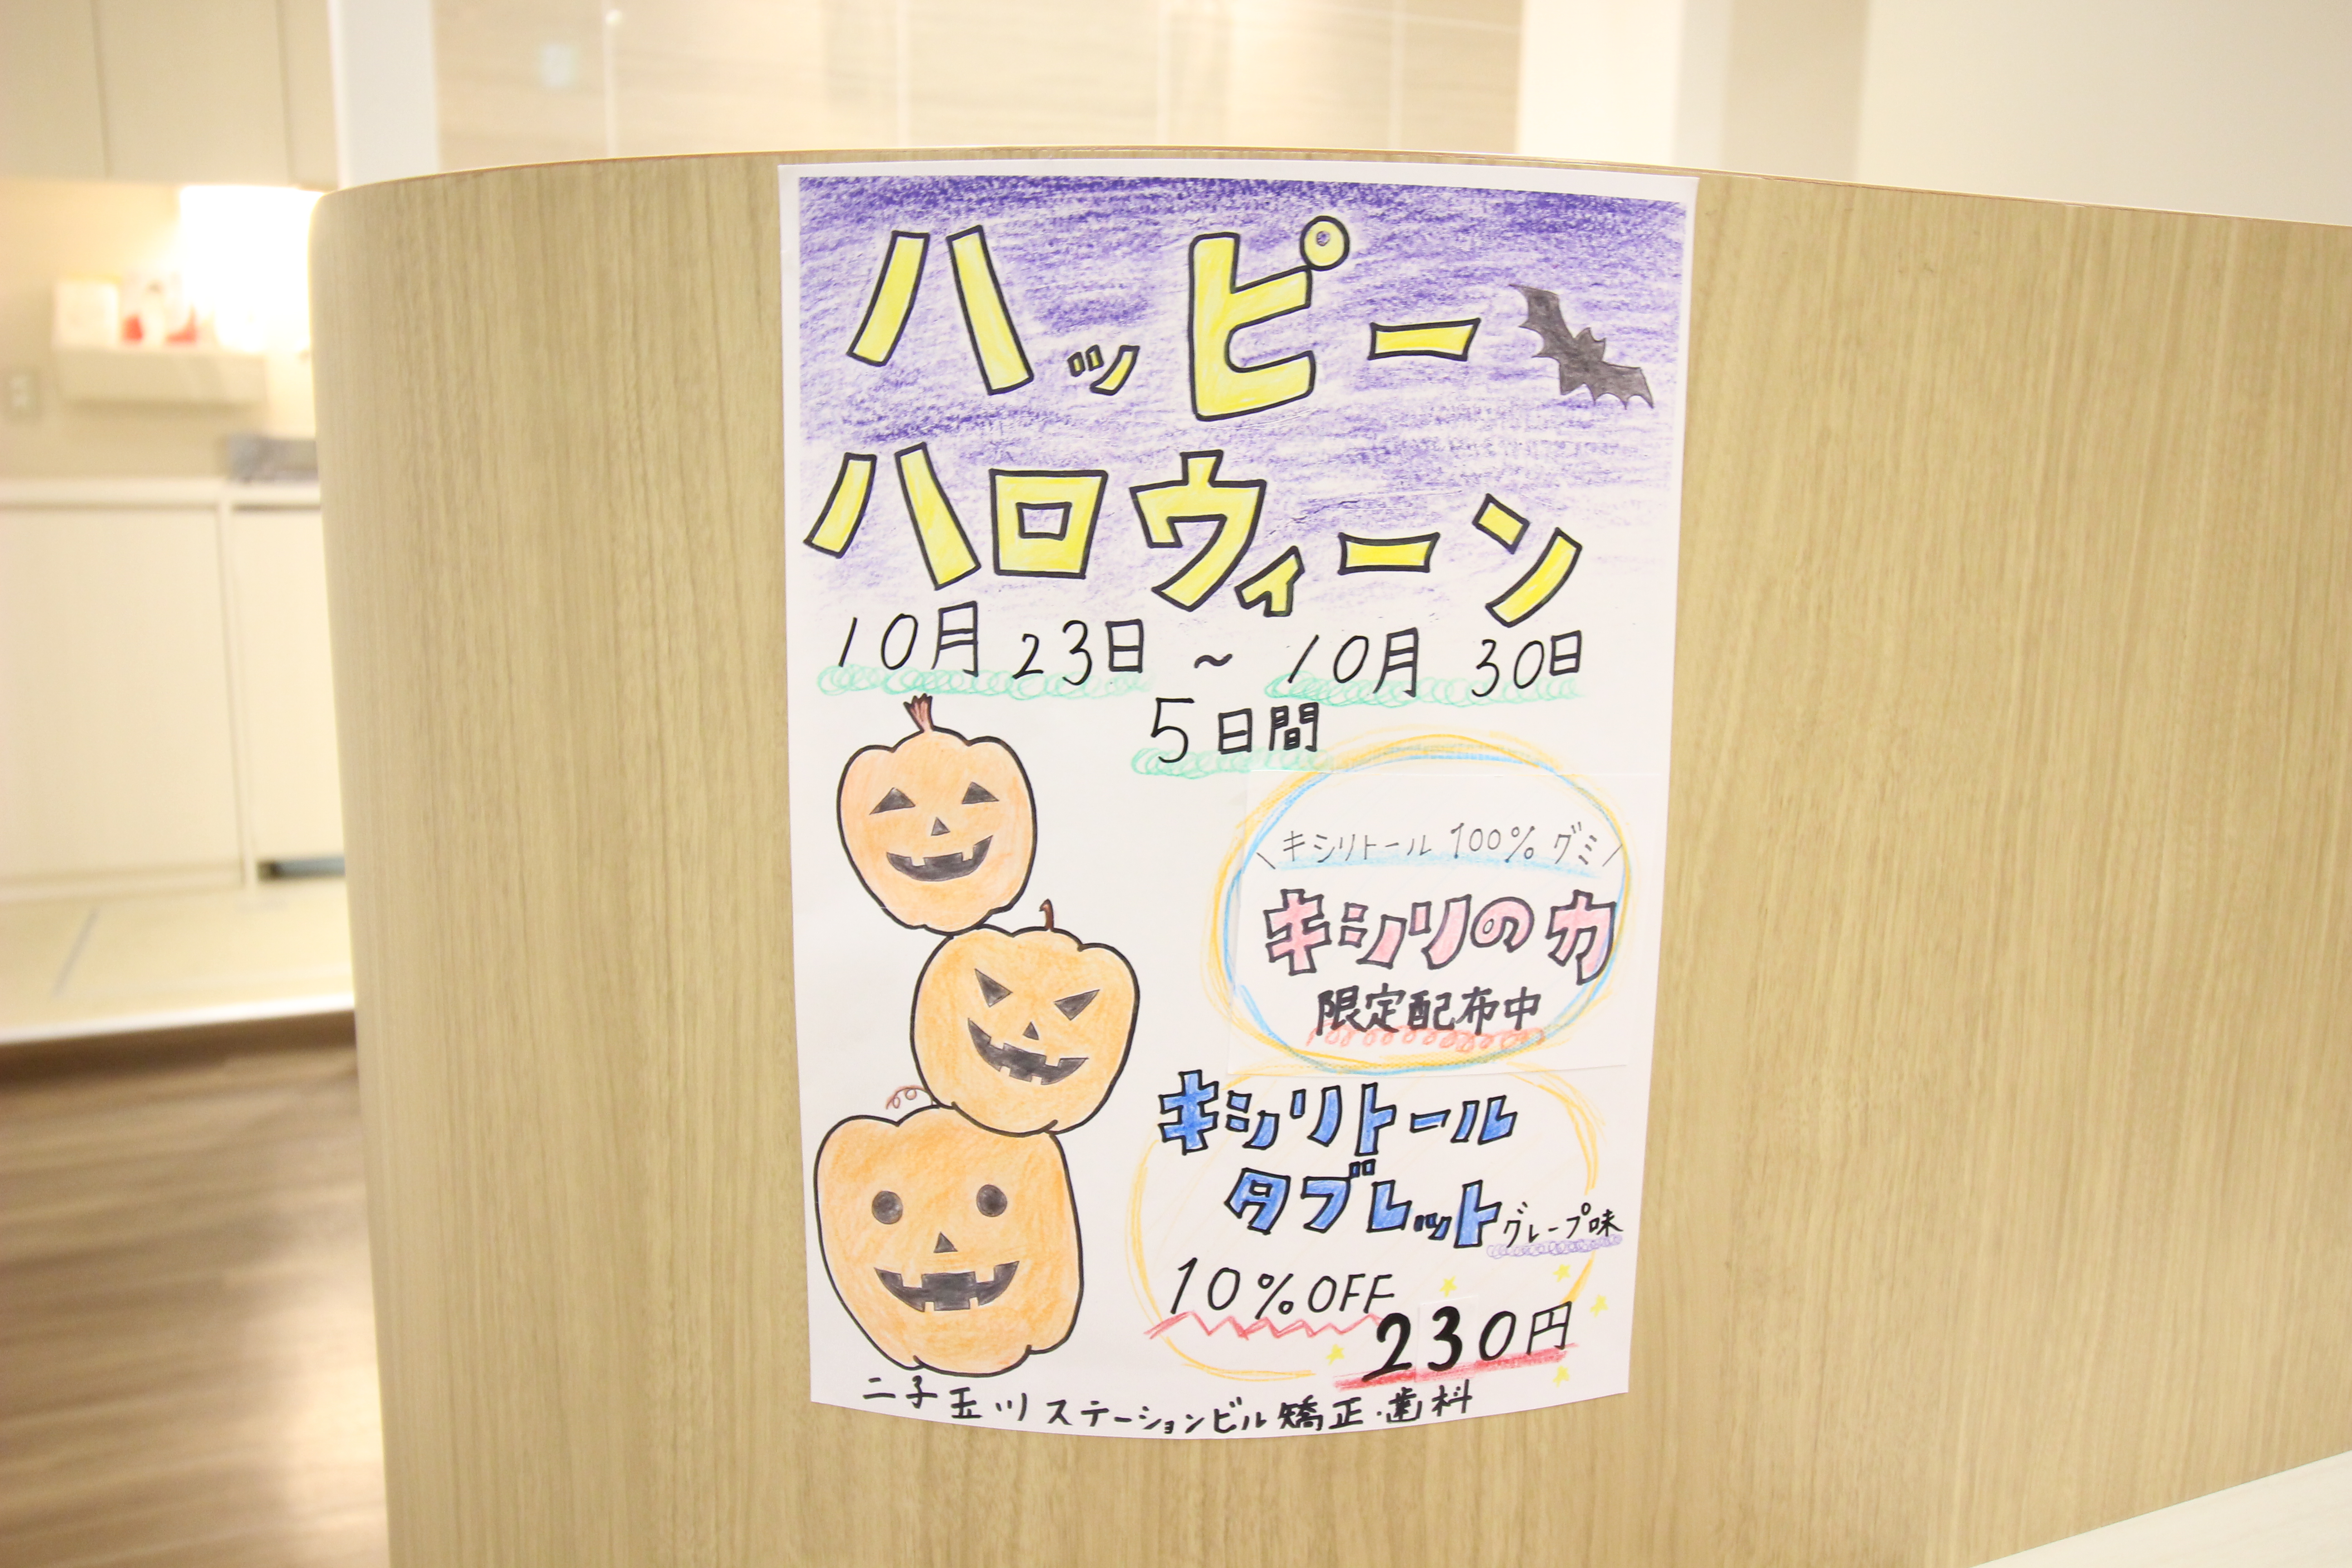 ハッピー
ハロウィーン
10月23日～10月30日
5日間
\キシリトール100%グミ/
キシリの力
限定配布中
キシリトール
タブレットグレープ味
10%OFF
230円
二子玉川ステーションビル矯正・歯科